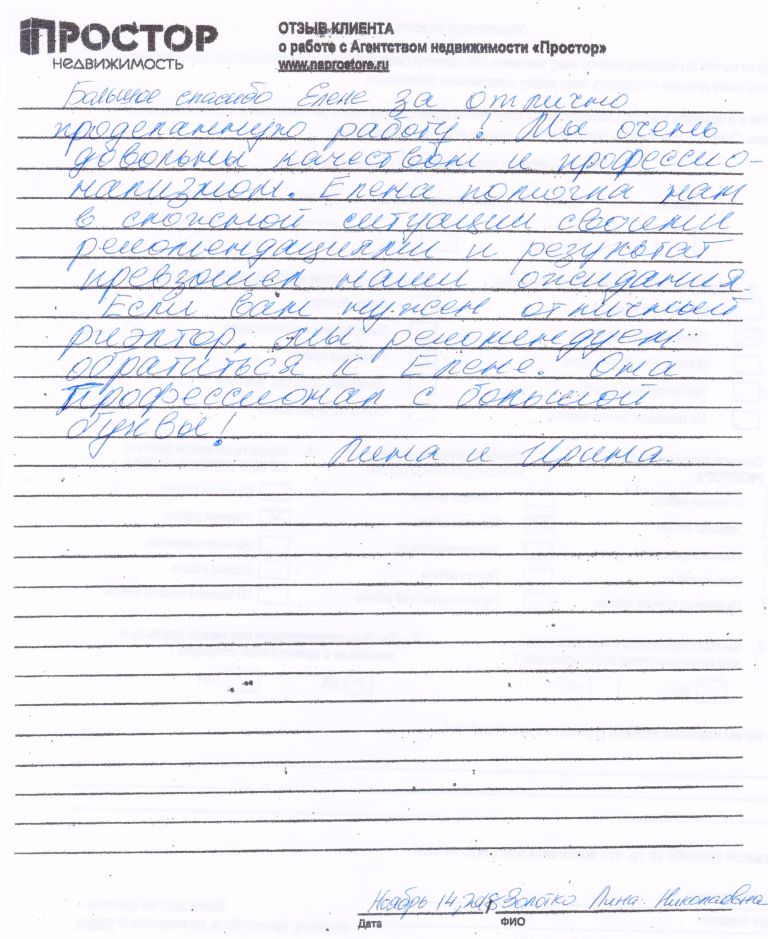 ПРОСТОР
НЕДВИЖИМОСТЬ
ОТЗЫВ КЛИЕНТА
о работе с Агентством недвижимости «Простор»
www.naprostore.ru
Большое спасибо Елене за отлично
проделанную работу! Мы очень
довольны качеством и профессио-
нализмом. Елена помогла нам
в сложной ситуации своими
рекомендациями и результат
превзошел наши ожидания.
Если вам нужен отличный
риэлтор, мы рекомендуем
обратиться к Елене. Она
Профессионал с большой
буквы!
Лина и Ирина.
Ноябрь 14, Золотко Лина Николаевна
Дата
ФИО